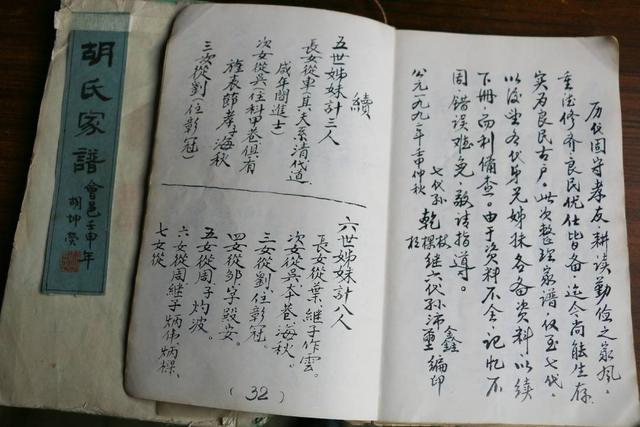 历代固守孝友耕读勤俭之家风。
重德修齐良民优仕皆备迄今尚能生存
实为良民古户。此次整理家谱,仅至七代。
以后望各代弟兄姊妹各备资料,以续
下册,而利備查。由于资料不全,记忆不
周,错误难免,敬请指导。
七代孙乾枝棵继六代孙沛鑫璽編印
公元一九九二年壬申仲秋
續
五世姊妹計三人
長女從車其夫系清代道
咸年間進士
次女從吳(住科甲巷俱有
旌表節孝子海秋
三次從劉(住彰冠)
六世姊妹計八人
長女從葉。継子作雲。
次女從吳本巷海秋。
三女從劉住彰冠。
四女從邹字毀安。
五女從周子灼波。
六女從周継子炳偉炳棵、
七女從
(32)
胡氏家譜
會邑壬申年
胡坤榮